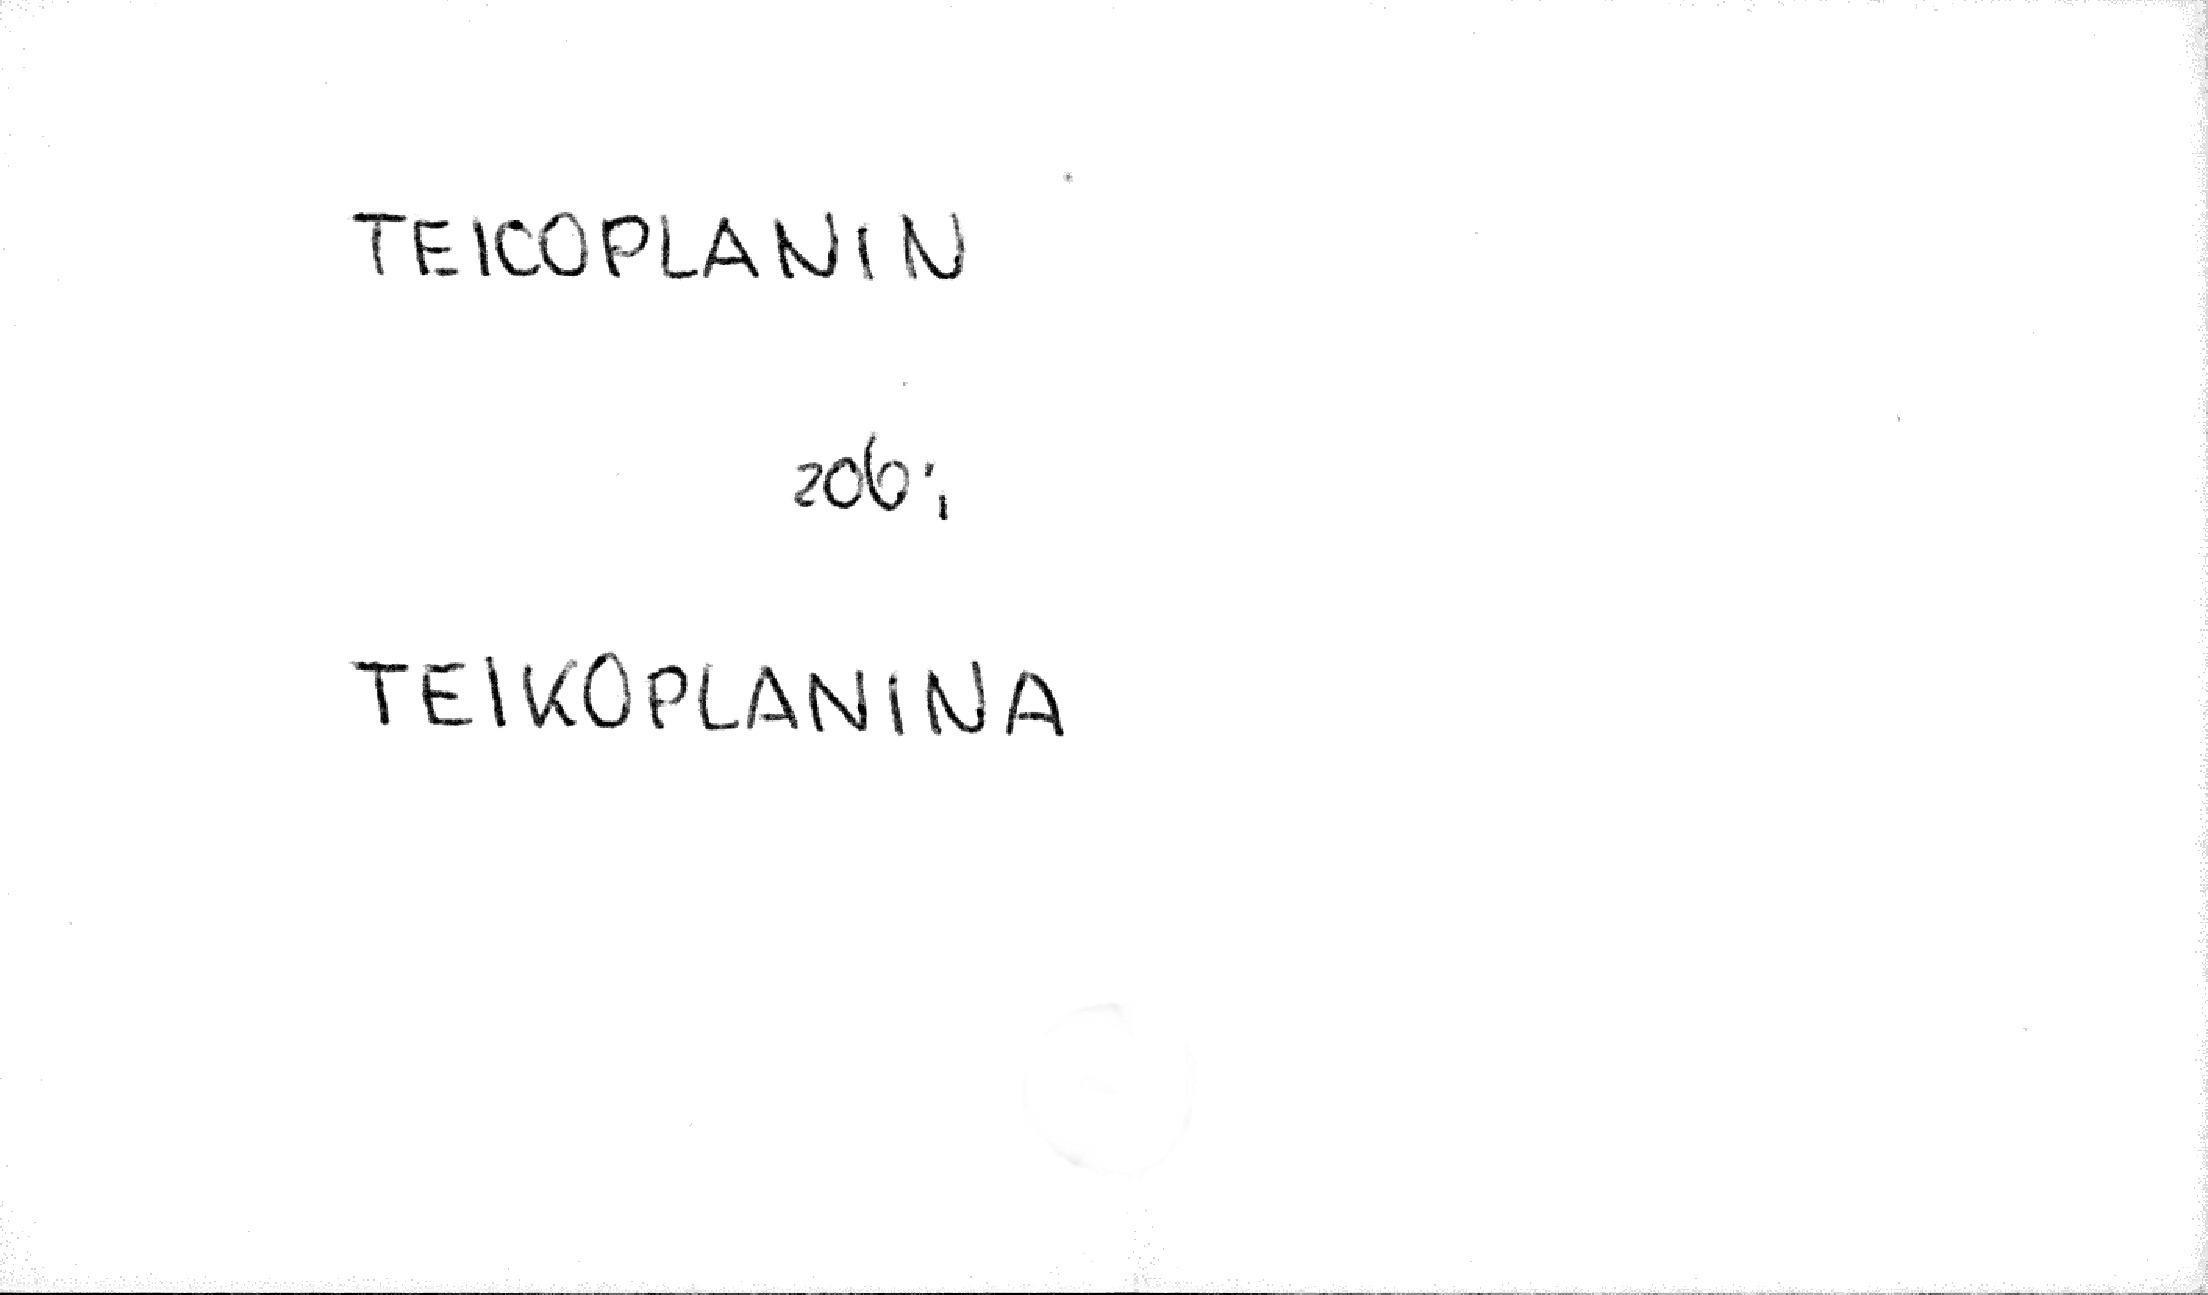 TEICOPLANIN
zob;
TEIKOPLANINA